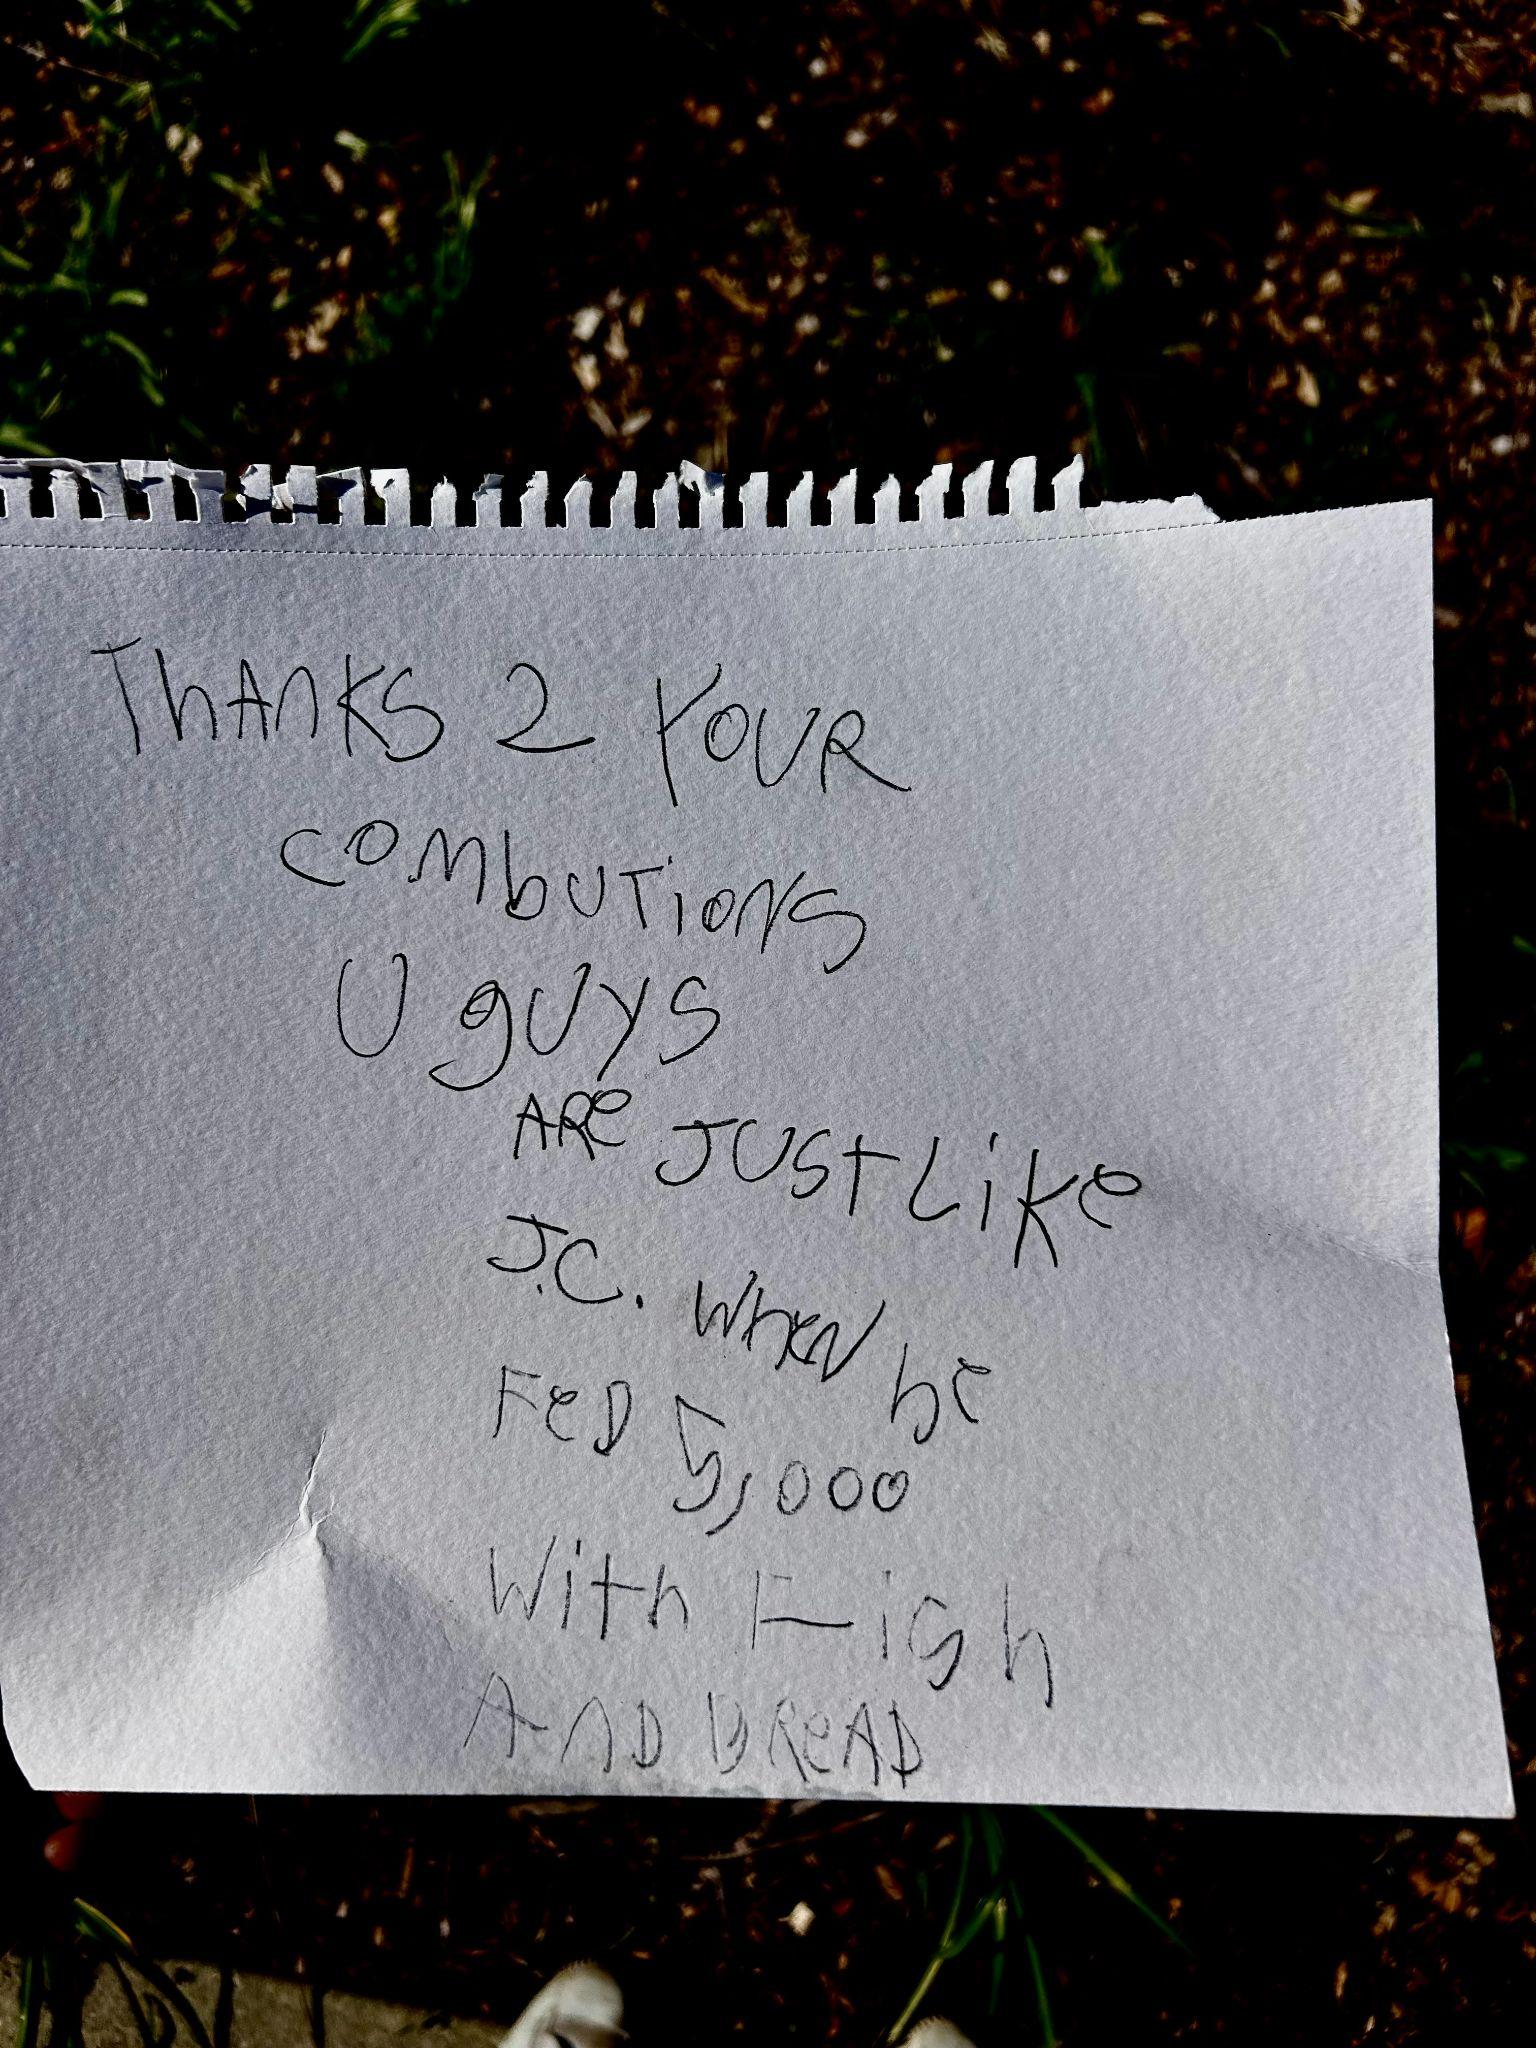 THANKS 2 YOUR
COMBUTIONS
U guys
ARe JUST Like
J.C. WheN he
FeD 5,000
With Fish
AND BReAD